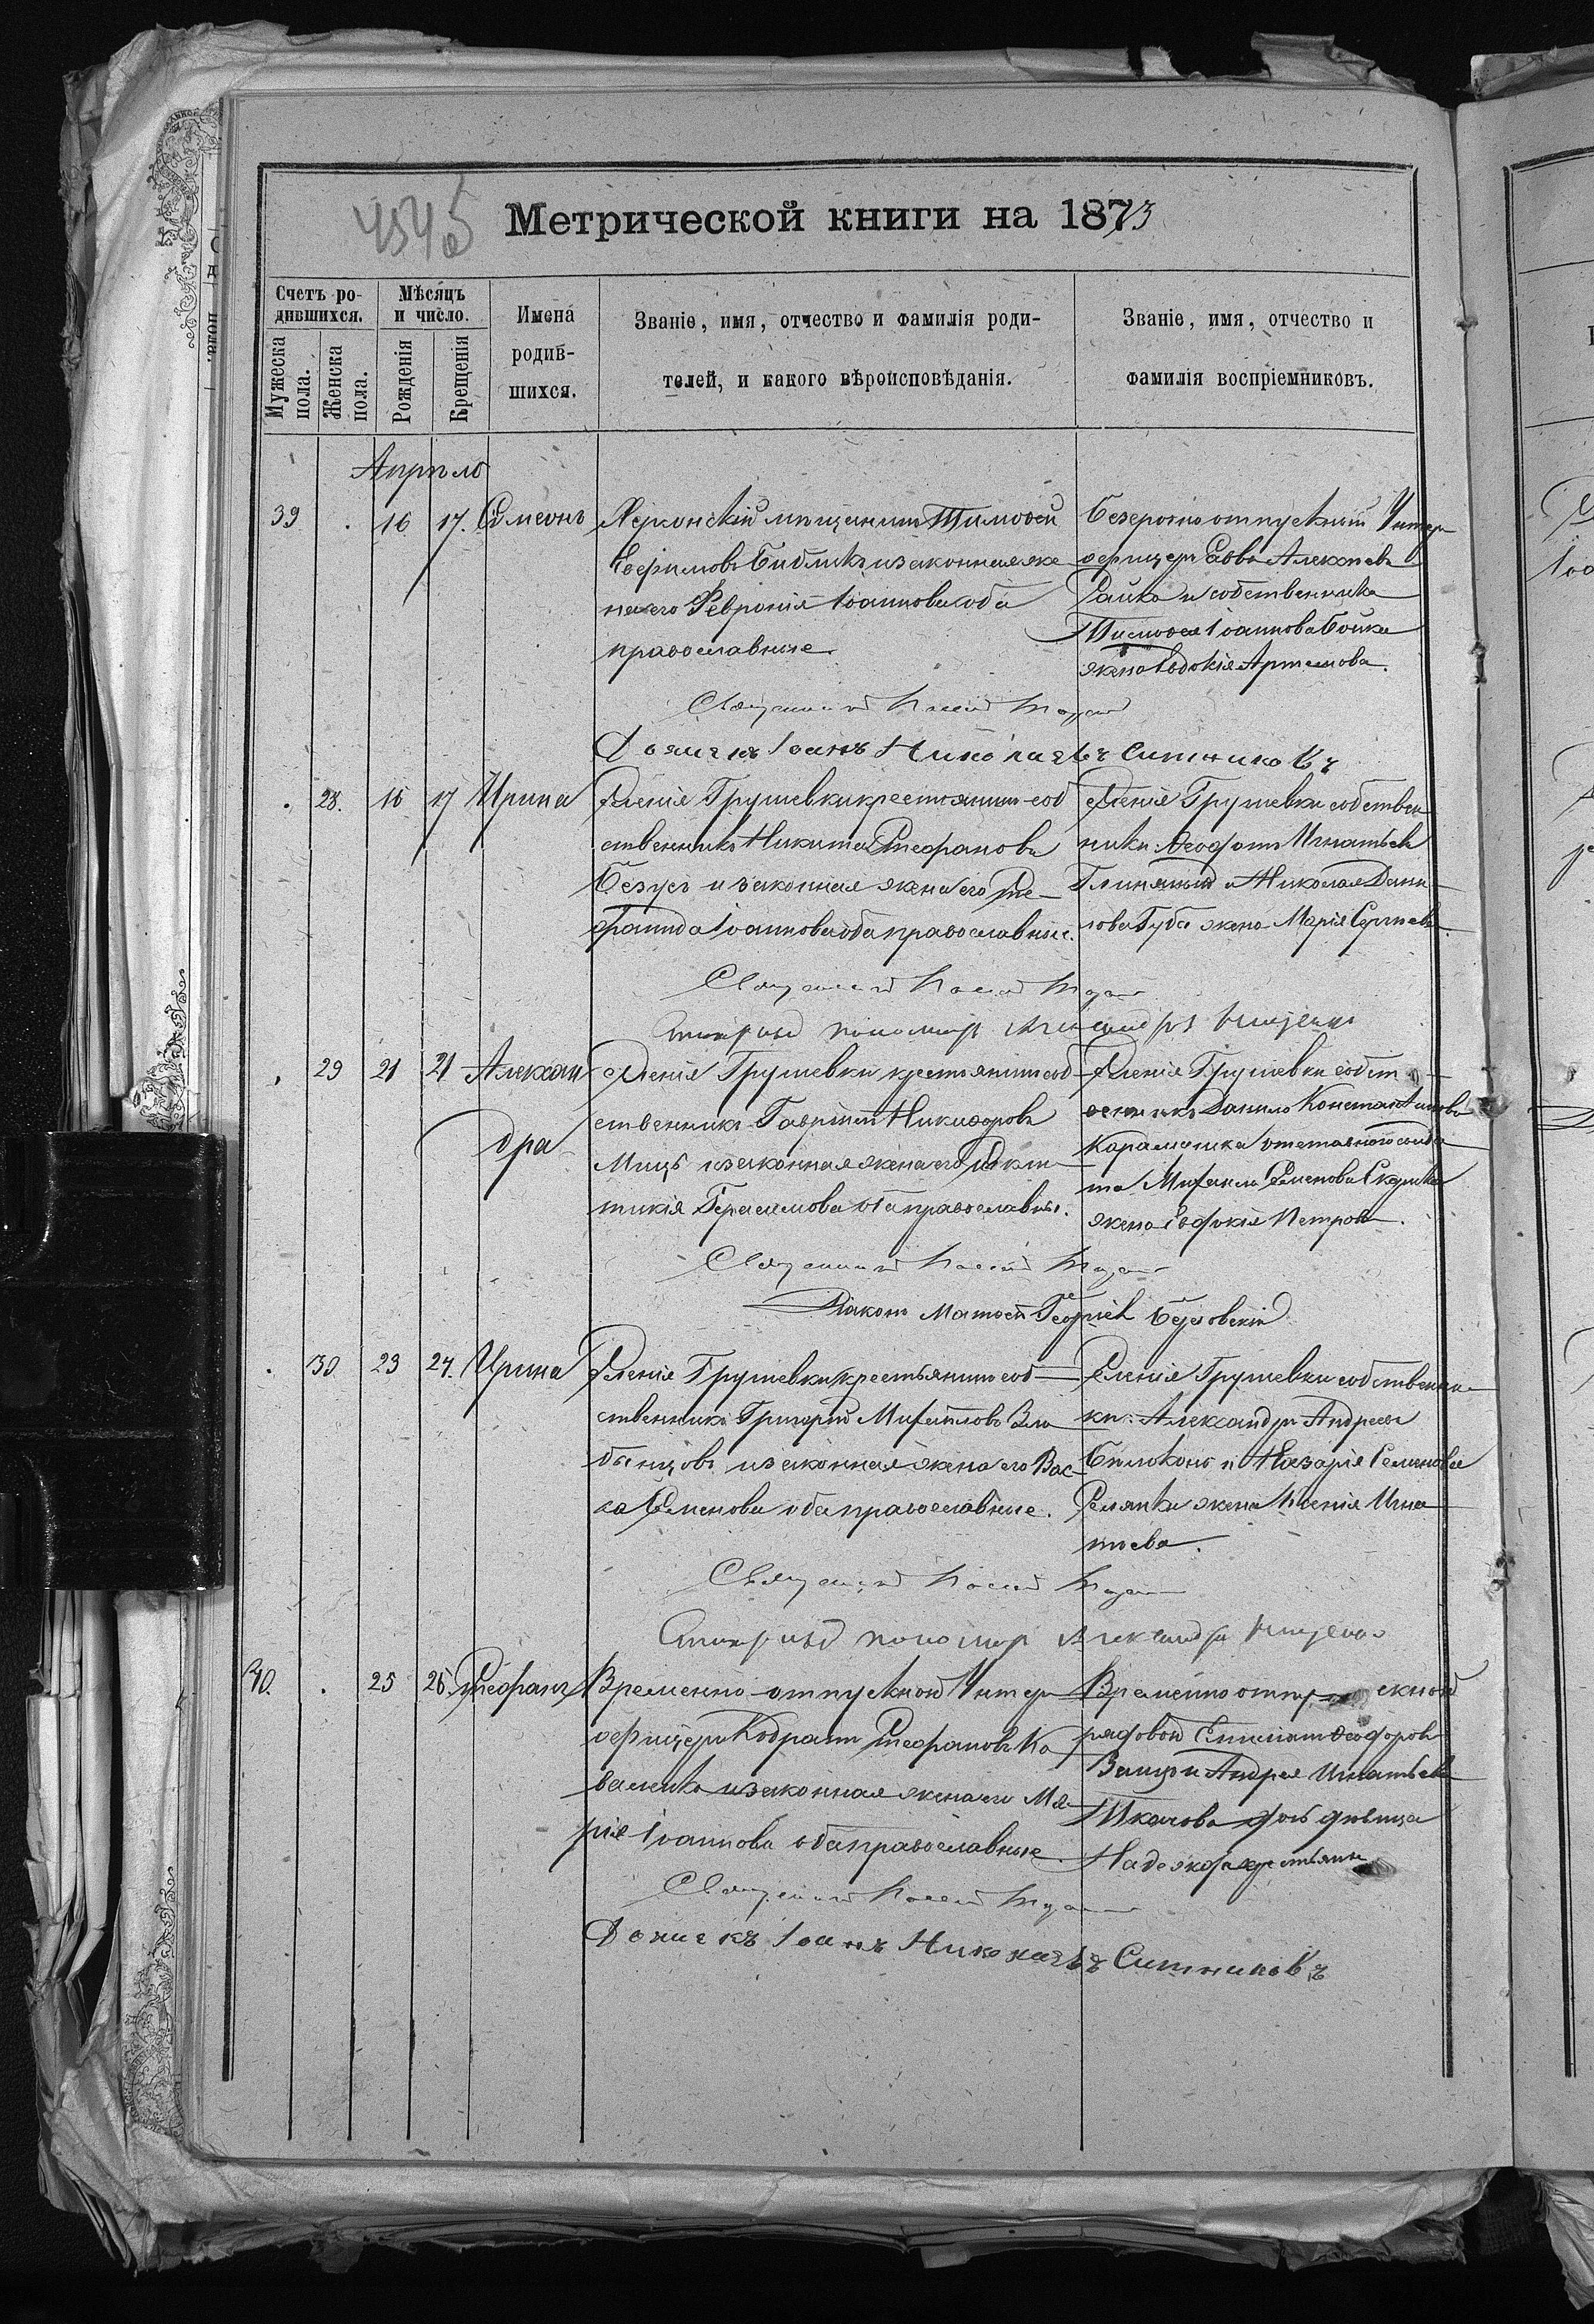 4545
Метрической книги на 1873
Счетъ ро-
дившихся.
Мѣсяцъ
и число.
Имена
родив-
шихся.
Званіе, имя, отчество и фамилія роди-
телей, и какого вѣроисповѣданія.
Званіе, имя, отчество и
фамилія воспріемниковъ.
Мужеска
пола.
Женска
пола.
Рожденія
Крещенія
Апрѣль
39 . 16 17. Симеонъ
Херсонскій мѣщанинъ Тимофей
Ефимовъ Библикъ и законная же
на его Феврониія Іоаннова оба
православные.
Безсрочно отпускный Унтер
офицеръ Савва Алексѣевъ
Райко и собственника
Тимофея Іоаннова Бойка
жена Евдокія Артемова.
Священникъ
Дьячекъ Іоанъ Николаевъ Ситниковъ
. 28. 16 17 Ирина
Селенія Грушевки крестьянинъ соб
ственникъ Никита Стефановъ
Безусъ и законная жена его Сте-
фанида Іоаннова оба православные.
Селенія Грушевки собствен
ники Феофанъ Игнатьевъ
Глиняный и Николая Дани-
лова Губы жена Марія Сергѣева.
Священникъ
пономарь Александръ
. 29 21 21 Алексан
дра
Селенія Грушевки крестьянинъ соб-
ственникъ Гавріилъ Никифоровъ
Мицъ и законная жена его
тикія Герасимова оба православны.
Селенія Грушевки собст-
венникъ Данило Константиновъ
Карамушка отставного солда
та Михаила Семенова
жена Евфокія Петрова.
Священникъ
Діаконъ Матфей Георгіев
. 30 23 24. Ирина
Селенія Грушевки крестьянинъ соб-
ственникъ Григорій Михайловъ Зло
бинцовъ и законная жена его Вас-
са Семенова оба православные.
Селенія Грушевки собственни-
ки: Александръ Андреевъ
Билоконь и Назарія Семенова
жена Ксенія Игна
тьева.
Священникъ
пономарь Александръ
40. . 25 26. Стефанъ
Временно-отпускной Унтер
офицеръ Кодратъ Стефановъ Ко
валенко и законная жена его Ма-
рія Іоаннова оба православные.
Временно отпускной
рядовой Феодоровъ
Заяцъ и Андрея Игнатьева
Ткачова дочь дѣвица
Надежда
Священникъ
Дьячекъ Іоанъ Николаевъ Ситниковъ